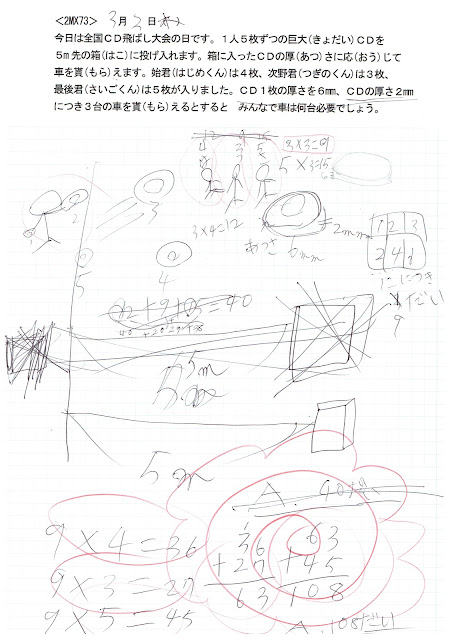 <2MX73> 3月2日
今日は全国ＣＤ飛ばし大会の日です。１人５枚ずつの巨大(きょだい)ＣＤを
５ｍ先の箱(はこ)に投げ入れます。箱に入ったＣＤの厚(あつ)さに応(おう)じて
車を貰(もら)えます。始君(はじめくん)は４枚、次野君(つぎのくん)は３枚、
最後君(さいごくん)は５枚が入りました。ＣＤ１枚の厚さを６㎜、ＣＤの厚さ２㎜
につき３台の車を貰(もら)えるとすると　みんなで車は何台必要でしょう。
4 3 5
3×3=9
5×3=15
3×4=12
あつさ 6mm
2mm
1 2 3
2 4
につき
だい
9
1
2
3
4
5
+9+
=40
5m
5m
A. 40
9×4=36
9×3=27
9×5=45
36
+27
63
63
+45
108
A. 108だい